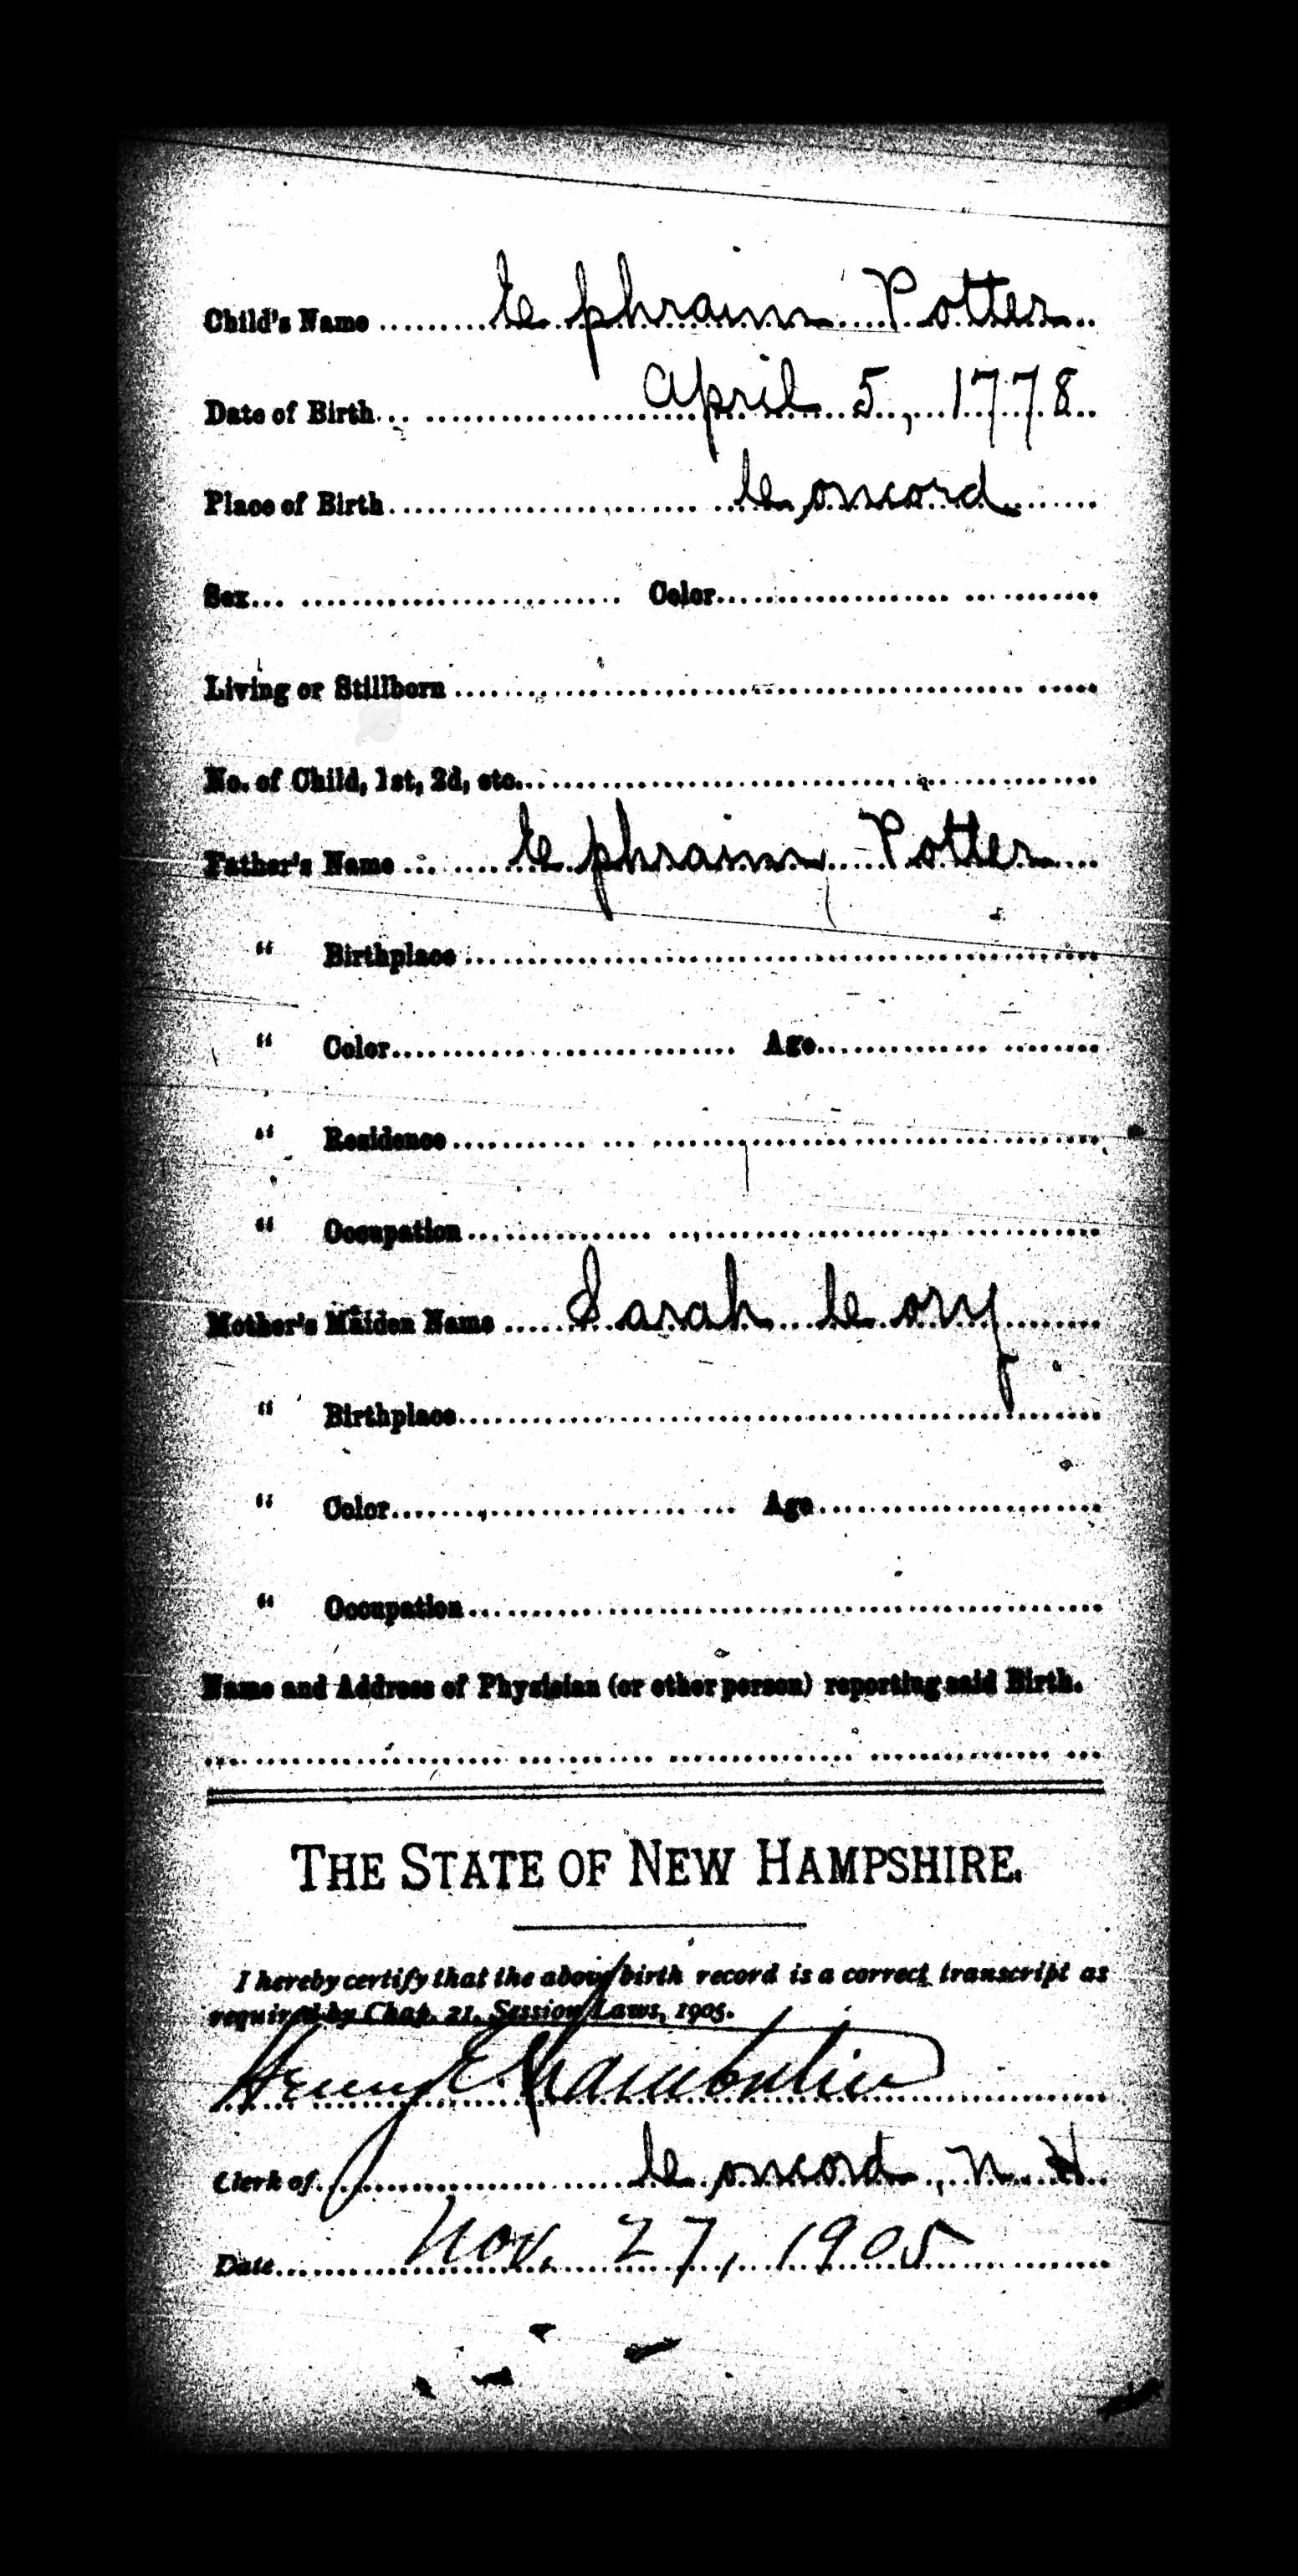 Child's Name Ephraim Potter
Date of Birth April 5, 1778
Place of Birth Concord
Sex Color
Living or Stillborn
No. of Child, 1st, 2d, etc.
Father's Name Ephraim Potter
" Birthplace
" Color Age
" Residence
" Occupation
Mother's Maiden Name Sarah Cory
" Birthplace
" Color Age
" Occupation
Name and Address of Physician (or other person) reporting said Birth.
THE STATE OF NEW HAMPSHIRE.
I hereby certify that the above birth record is a correct transcript as
required by Chap. 21, Session Laws, 1905.
Henry E. Chamberlin
Clerk of Concord, N. H.
Date Nov. 27, 1905